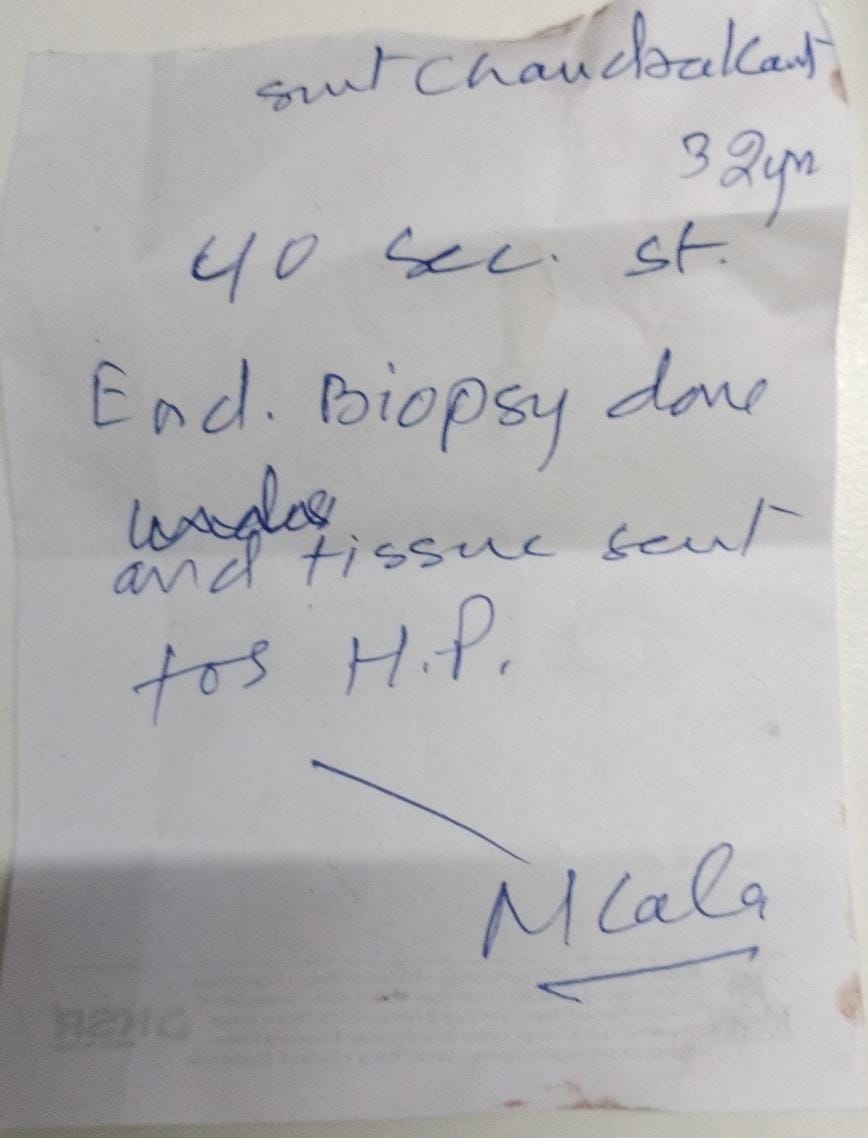 smt Chandrakant
32yr
40 sec. st.
End. Biopsy done
and tissue sent
for H.P.